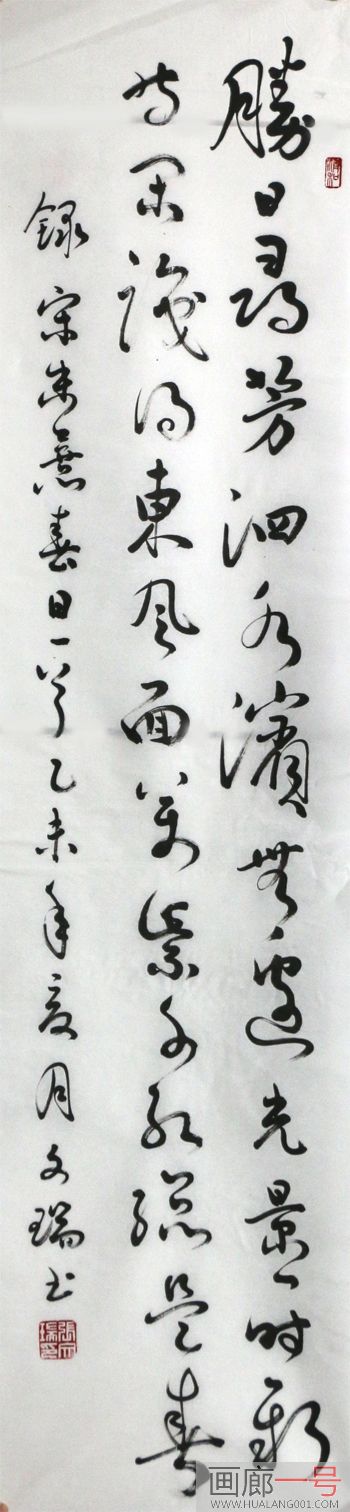 勝日尋芳泗水濱無邊光景一時新
等閑識得東風面萬紫千紅總是春
録宋朱熹春日一首乙未年夏月文瑞书
張文瑞印
画廊一号
WWW.HUALANG001.COM